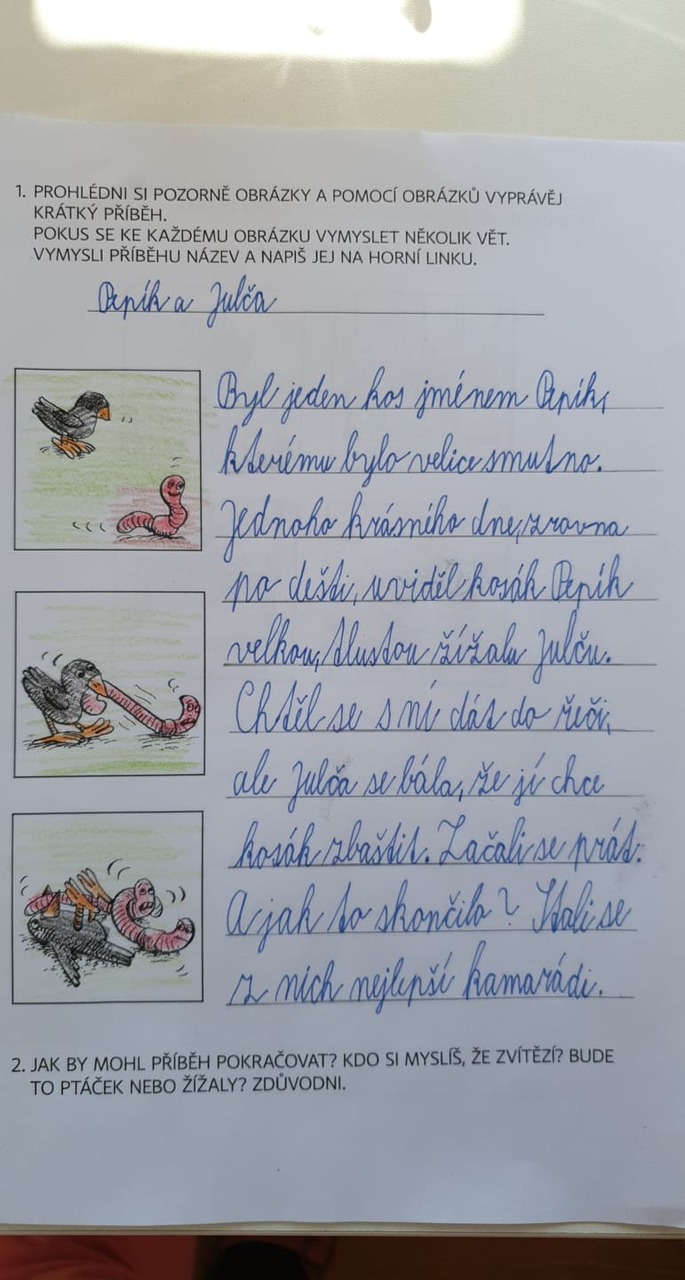 1. PROHLÉDNI SI POZORNĚ OBRÁZKY A POMOCÍ OBRÁZKŮ VYPRÁVĚJ
KRÁTKÝ PŘÍBĚH.
POKUS SE KE KAŽDÉMU OBRÁZKU VYMYSLET NĚKOLIK VĚT.
VYMYSLI PŘÍBĚHU NÁZEV A NAPIŠ JEJ NA HORNÍ LINKU.
Pepík a Julča
Byl jeden kos jménem Pepík,
kterému bylo velice smutno.
Jednoho krásného dne, zrovna
po dešti, uviděl kosák Pepík
velkou, tlustou žížalu Julču.
Chtěl se s ní dát do řeči,
ale Julča se bála, že jí chce
kosák zbaštit. Začali se prát.
A jak to skončilo? Stali se
z nich nejlepší kamarádi.
2. JAK BY MOHL PŘÍBĚH POKRAČOVAT? KDO SI MYSLÍŠ, ŽE ZVÍTĚZÍ? BUDE
TO PTÁČEK NEBO ŽÍŽALY? ZDŮVODNI.